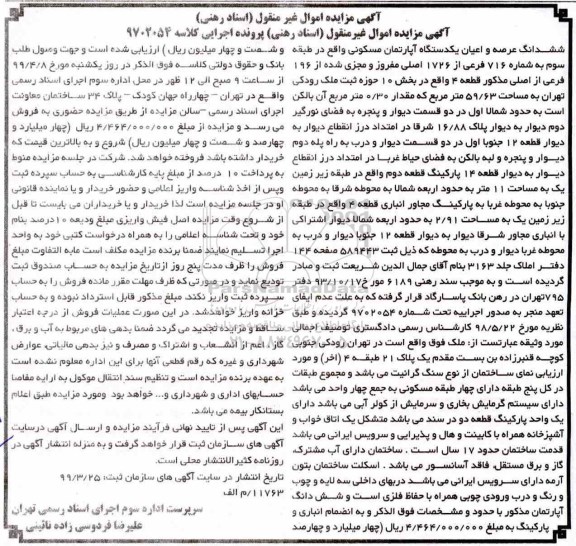 آگهی مزایده اموال غیر منقول (اسناد رهنی)
آگهی مزایده اموال غیرمنقول (اسناد رهنی) پرونده اجرایی کلاسه ۹۷۰۲۰۵۴
ششدانگ عرصه و اعیان یکدستگاه آپارتمان مسکونی واقع در طبقه
سوم به شماره ۷۱۶ فرعی از ۱۷۲۶ اصلی مفروز و مجزی شده از ۱۹۶
فرعی از اصلی مذکور قطعه ۴ واقع در بخش ۱۰ حوزه ثبت ملک رودکی
تهران به مساحت ۵۹/۶۳ متر مربع که مقدار ۰/۳۰ متر مربع آن بالکن
است به حدود شمالا اول در دو قسمت دیوار و پنجره به فضای نورگیر
دوم دیوار به دیوار پلاک ۱۶/۸۸ شرقا در امتداد درز انقطاع دیوار به
دیوار قطعه ۱۲ جنوبا اول در دو قسمت دیوار و درب به راه پله دوم
دیوار و پنجره و لبه بالکن به فضای حیاط غربا در امتداد درز انقطاع
دیوار به دیوار قطعه ۱۴ پارکینگ قطعه دوم واقع در طبقه زیر زمین
یک به مساحت ۱۱ متر به حدود اربعه شمالا به محوطه شرقا به محوطه
جنوبا به محوطه غربا به پارکینگ مجاور انباری قطعه ۴ واقع در طبقه
زیر زمین یک به مساحت ۲/۹۱ به حدود اربعه شمالا دیوار اشتراکی
با انباری مجاور شرقا دیوار به دیوار قطعه ۱۲ جنوبا دیوار و درب به
محوطه غربا دیوار و درب به محوطه که ذیل ثبت ۵۸۹۴۴۳ صفحه ۱۴۴
دفتر املاک جلد ۳۱۶۳ بنام آقای جمال الدین شریعت ثبت و صادر
گردیده است و به موجب سند رهنی ۶۱۸۹ مور ۹۳/۰۷/۱۷ دفتر
۷۹۵تهران در رهن بانک پاسارگاد قرار گرفته که به علت عدم ایفای
تعهد منجر به صدور اجراییه تحت شماره ۹۷۰۲۰۵۴ گردیده و طبق
نظریه مورخ ۹۸/۵/۲۲ کارشناس رسمی دادگستری توصیف اجمالی
مورد وثیقه عبارتست از: ملک فوق واقع است در تهران رودکی جنوبی
کوچه قنبرزاده بن بست مقدم یک پلاک ۲۱ طبقه ۴ (آخر) و مورد
ارزیابی نمای ساختمان از نوع سنگ گرانیت می باشد و مجموع طبقات
در کل پنج طبقه دارای چهار طبقه مسکونی به جمع چهار واحد می باشد
دارای سیستم گرمایش بخاری و سرمایش از کولر آبی می باشد دارای
یک واحد پارکینگ قطعه دو در سند می باشد متشکل یک اتاق خواب و
آشپزخانه همراه با کابینت و هال و پذیرایی و سرویس ایرانی می باشد
قدمت ساختمان حدود ۱۷ سال است . ساختمان دارای آب مشترک،
گاز و برق مستقل، فاقد آسانسور می باشد . اسکلت ساختمان بتون
آرمه دارای سرویس ایرانی می باشد دربهای داخلی سه لایه و چوب
و رنگ و درب ورودی چوبی همراه با حفاظ فلزی است و شش دانگ
آپارتمان مذکور با حدود و مشخصات فوق الذکر و به انضمام انباری و
پارکینگ به مبلغ ۴/۴۶۴/۰۰۰/۰۰۰ ریال (چهار میلیارد و چهارصد
و شصت و چهار میلیون ریال ) ارزیابی شده است و جهت وصول طلب
بانک و حقوق دولتی کلاسه فوق الذکر در روز یکشنبه مورخ ۹۹/۴/۸
از ساعت ۹ صبح الی ۱۲ ظهر در محل اداره سوم اجرای اسناد رسمی
واقع در تهران – چهارراه جهان کودک – پلاک ۳۴ ساختمان معاونت
اجرای اسناد رسمی –سالن مزایده از طریق مزایده حضوری به فروش
می رسد و مزایده از مبلغ ۴/۴۶۴/۰۰۰/۰۰۰ ریال (چهار میلیارد و
چهارصد و شصت و چهار میلیون ریال) شروع و به بالاترین قیمت که
خریدار داشته باشد فروخته خواهد شد. شرکت در جلسه مزایده منوط
به پرداخت ۱۰ درصد از مبلغ پایه کارشناسی به حساب سپرده ثبت
وپس از اخذ شناسه واریز اعلامی و حضور خریدار و یا نماینده قانونی
او در جلسه مزایده است لذا خریدار و یا خریداران می بایست تا قبل
از شروع وقت مزایده اصل فیش واریزی مبلغ ودیعه ۱۰درصد بنام
خود و تحت شناسه اعلامی را به همراه درخواست کتبی خود به واحد
اجرا تسلیم نمایند ضمنا برنده مزایده مکلف است مابه التفاوت مبلغ
فروش را ظرف مدت پنج روز ازتاریخ مزایده به حساب صندوق ثبت
تودیع نماید و در صورتی که ظرف مهلت مقرر مانده فروش را به حساب
سپرده ثبت واریز نکند، مبلغ مذکور قابل استرداد نبوده و به حساب
خزانه واریز خواهدشد. در این صورت عملیات فروش از درجه اعتبار
ساقط و مزایده تجدید می گردد ضمنا بدهی های مربوط به آب و برق ،
گاز ، اعم از انشعاب و اشتراک و مصرف و نیز بدهی مالیاتی، عوارض
شهرداری و غیره که رقم قطعی آنها برای این اداره معلوم نشده است
به عهده برنده مزایده است و تنظیم سند انتقال موکول به ارایه مفاصا
حسابهای اداری و شهرداری و... خواهد بود. ومورد مزایده طبق اعلام
بستانکار بیمه می باشد.
این آگهی پس از تایید نهائی فرآیند مزایده و ارسال آگهی درسایت
آگهی های سازمان ثبت قرار خواهد گرفت و به منزله انتشار آگهی در
روزنامه کثیر الانتشار محلی است.
تاریخ انتشار در سایت آگهی های سازمان ثبت: ۹۹/۳/۲۵
۱۱۷۶۳/م الف
سرپرست اداره سوم اجرای اسناد رسمی تهران
علیرضا فردوسی زاده نائینی